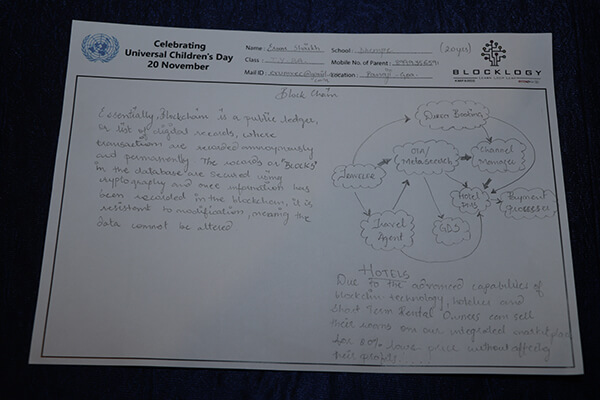 Celebrating
Universal Children's Day
20 November
Name: Esam Shaikh School:
(20yrs)
Class: T.Y. BA Mobile No. of Parent:
Mail ID Location: Goa
BLOCKLOGY
Block Chain
Essentially, Blockchain is a public ledger,
or list of digital records, where
transactions are recorded annoymously
and permanently. The records or "BLOCKS"
in the database are secured using
cryptography and once information has
been recorded in the blockchain, it is
resistant to modification, meaning the
data cannot be altered
Direct Booking
OTA/
Metasearch
Channel
Manager
Hotel
PMS
Payment
Processes
Travel
Agent
GDS
HOTELS
Due to the advanced capabilities of
blockchain technology, hotelies and
Short Term Rental Owners can sell
their rooms on our integrated marketplace
for 80% lower price without affecting
their profits.